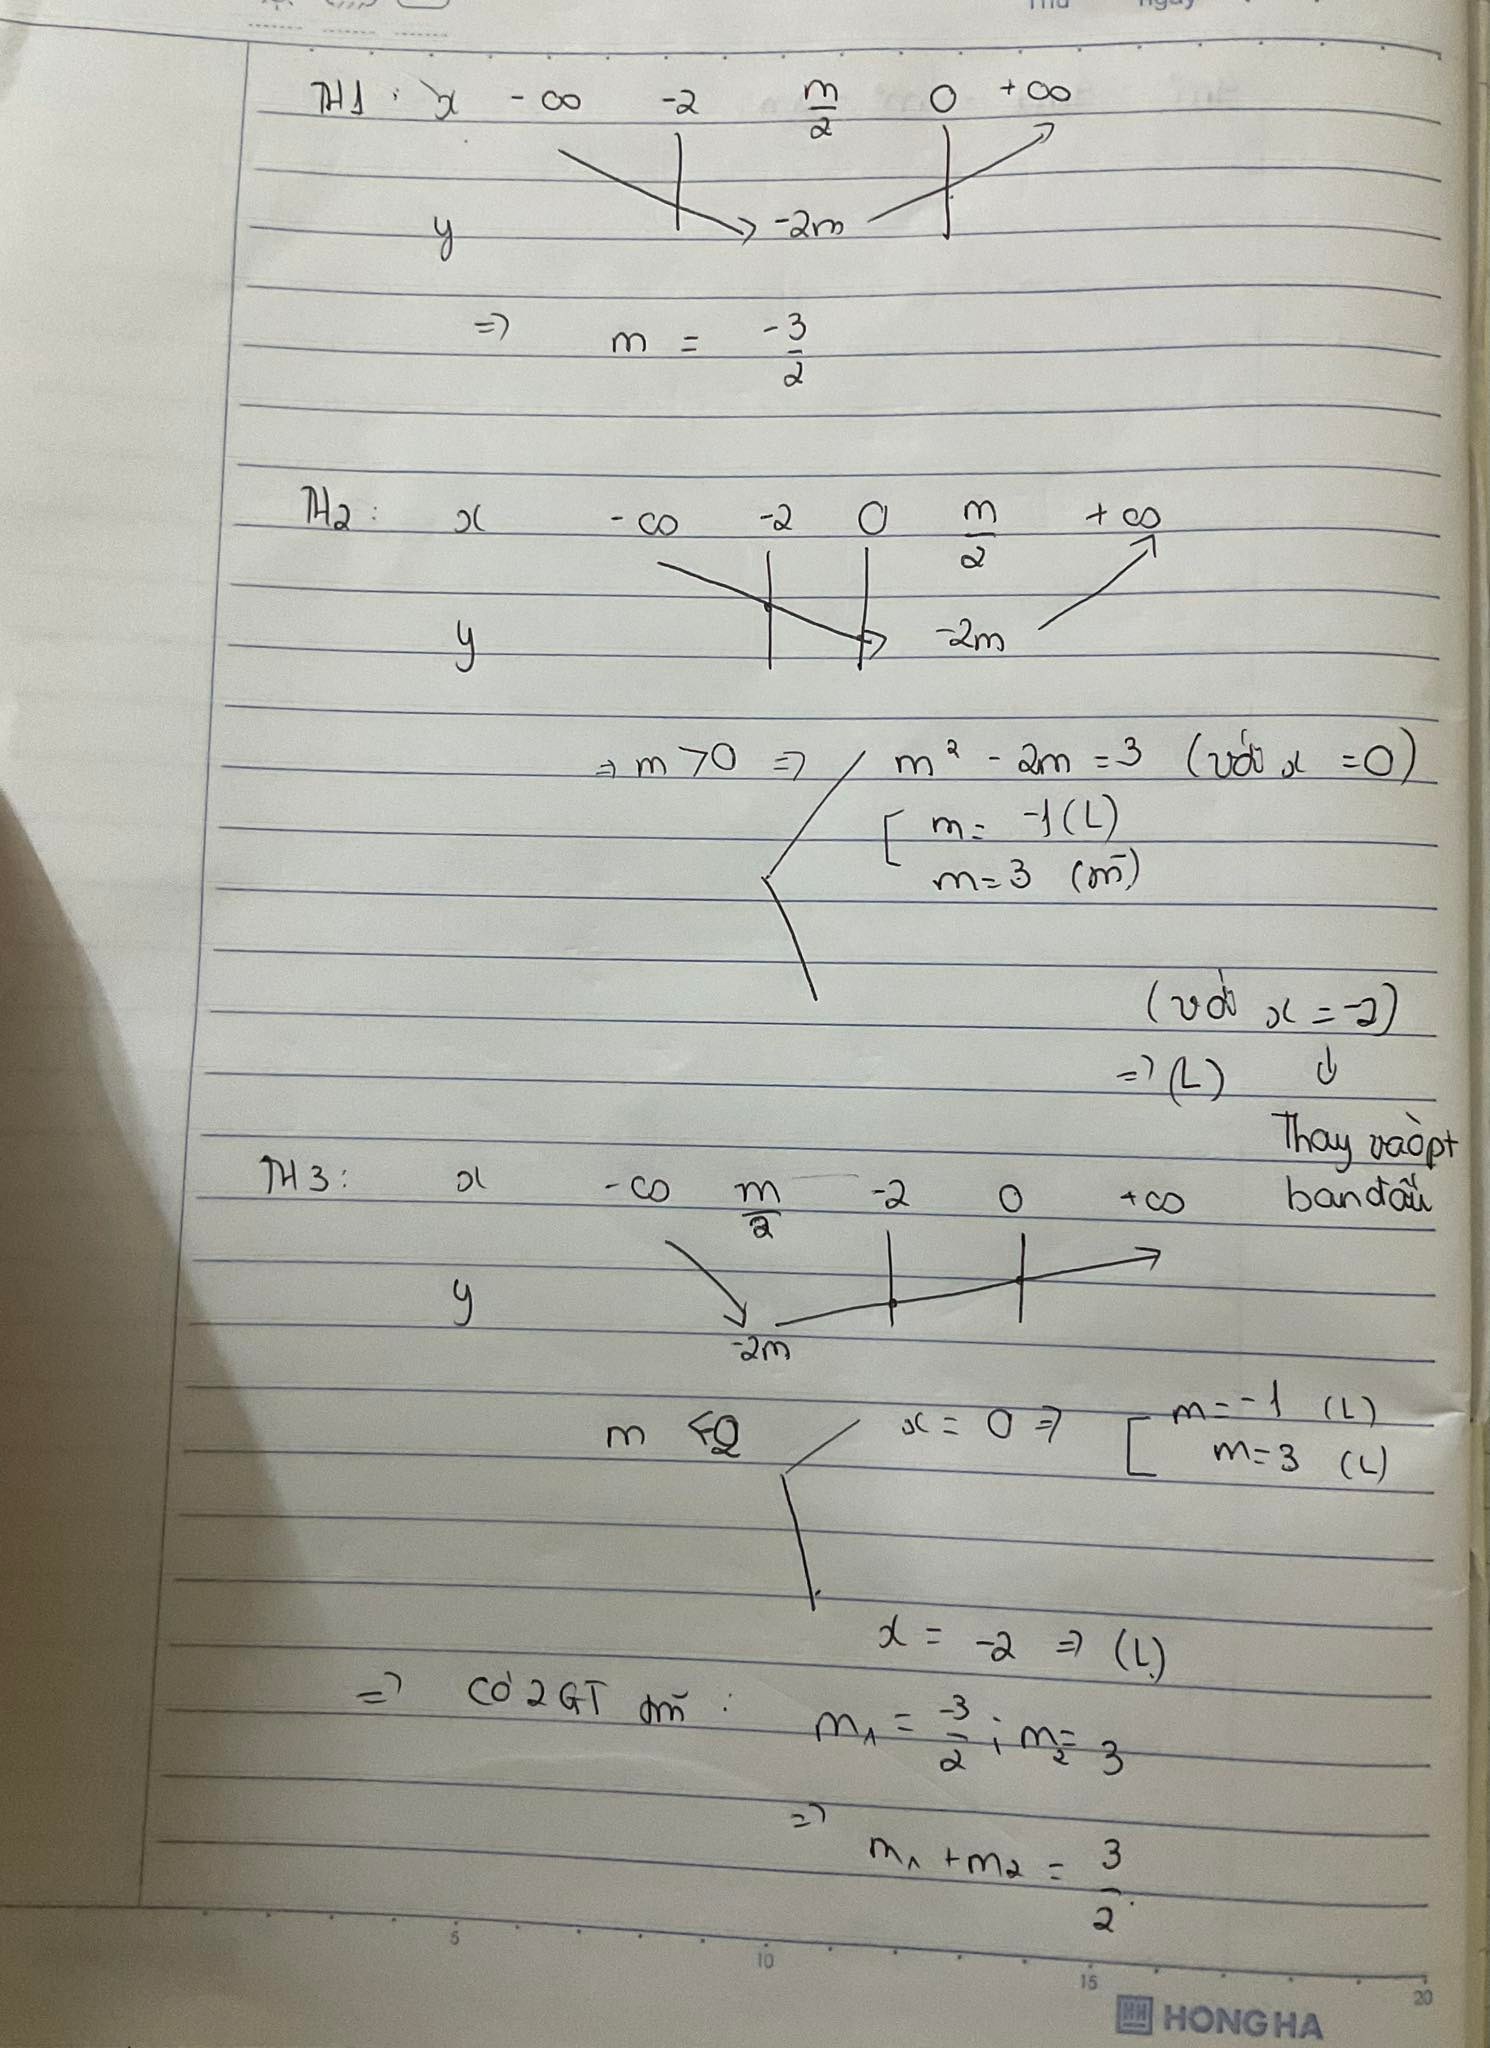 Thứ Ngày
TH1: x -∞ -2 m/2 0 +∞
y -2m
=> m = -3/2
TH2: x -∞ -2 0 m/2 +∞
y -2m
=> m > 0 => m² - 2m = 3 (với x = 0)
[ m = -1 (L)
m = 3 (TM)
(với x = -2)
=> (L) ↓
Thay vào pt
ban đầu
TH3: x -∞ m/2 -2 0 +∞
y
-2m
x = 0 => [ m = -1 (L)
m = 3 (L)
x = -2 => (L)
=> Có 2 GT TM : m₁ = -3/2 ; m₂ = 3
=> m₁ + m₂ = 3/2
5 10 15 20
HH HONG HA